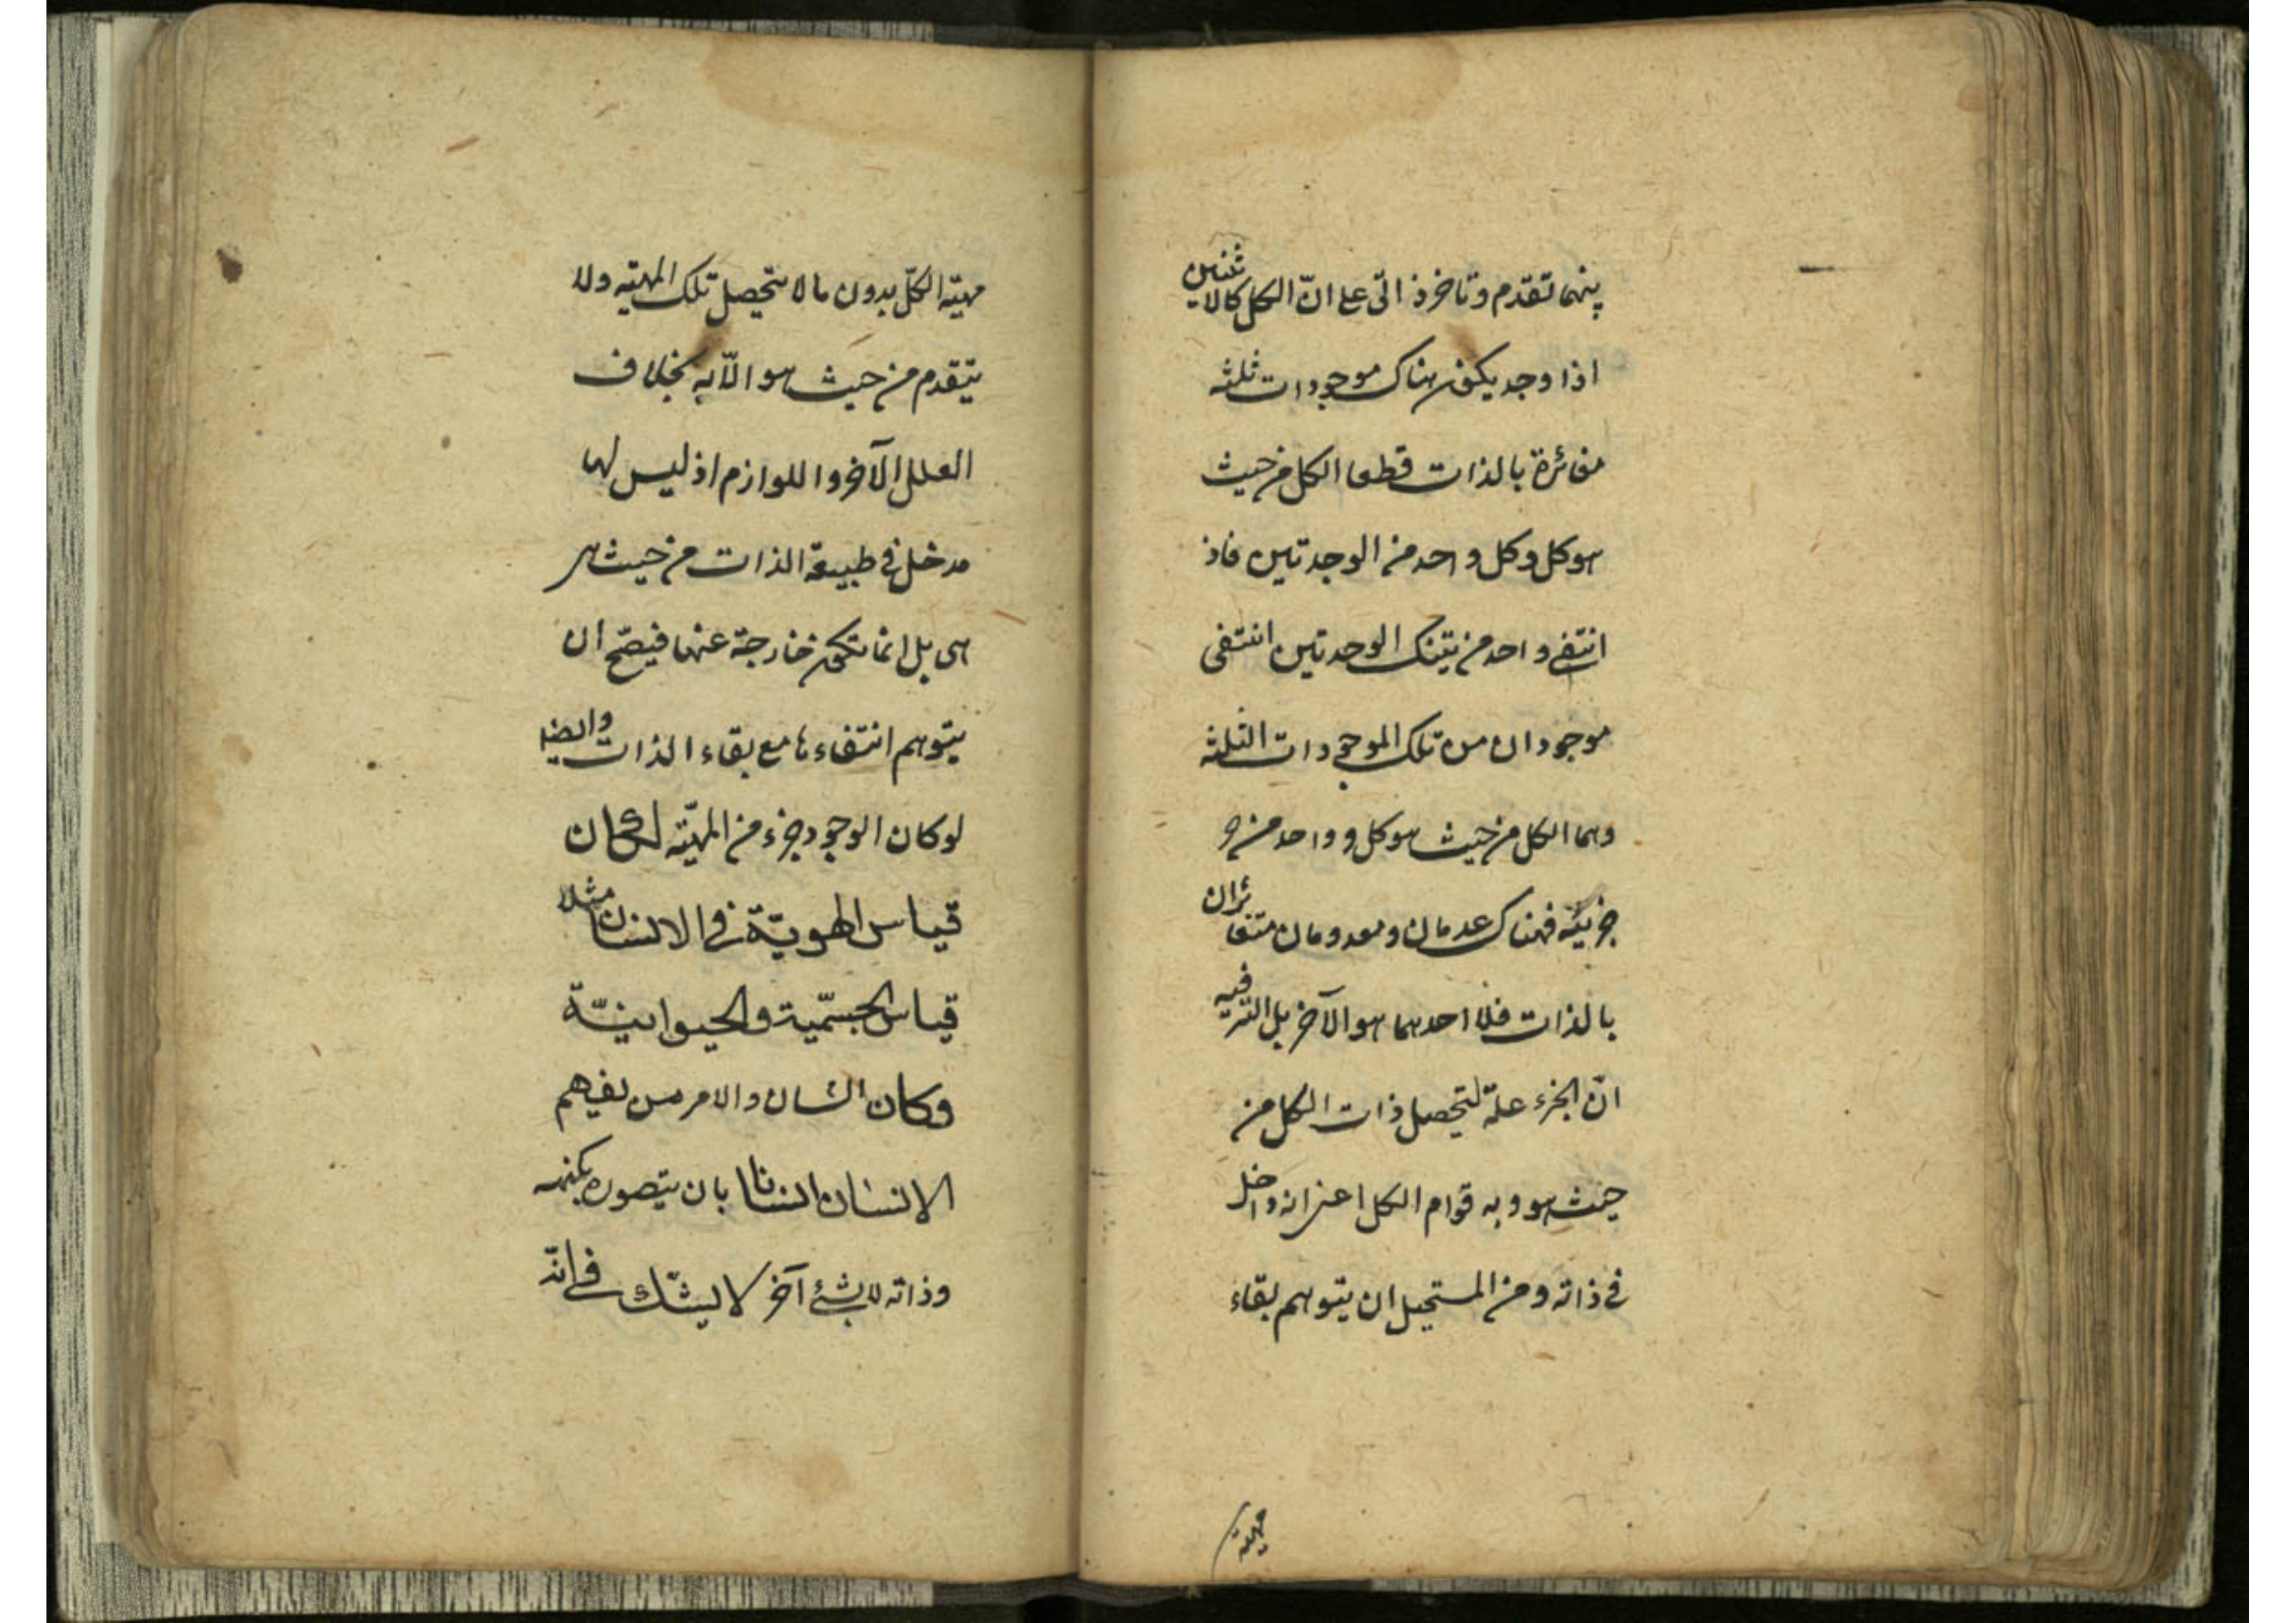 بينهما تقدم وتاخر ذاتى على انّ الكل كالاثنين
اذا وجد يكون هناك موجودات ثلثه
مغائرة بالذات قطعا الكل من حيث
هو كل وكل واحد من الوحدتين فاذ
انتفى واحد من تينك الوحدتين انتفى
موجودان من تلك الموجودات الثلثه
وهما الكل من حيث هو كل و واحد من
جزئيه فهناك عدمان ومعدومان متغائران
بالذات فلا احدهما هو الآخر بل السّر فيه
انّ الجزء علة لتحصل ذات الكل من
حيث هو وبه قوام الكل اعنى انه داخل
فى ذاته ومن المستحيل ان يتوهم بقاء
مهيّة
مهيّة الكلّ بدون ما لا يتحصل تلك المهيّه ولا
يتقدم من حيث هو الّا به بخلاف
العلل الآخر واللوازم اذ ليس لها
مدخل فى طبيعة الذات من حيث هى
هى بل انما تكون خارجة عنها فيصّح ان
يتوهم انتفاءها مع بقاء الذات وايضا
لو كان الوجود جزء من المهيّه لكان
قياس الهويّة فى الانسان مثلا
قياس الجسميّة والحيوانيّة
وكان الشان والامر من يفهم
الانسان انسانا بان يتصوره بكنهه
وذاته لا بشئ آخر لا يشكّ فى انّه